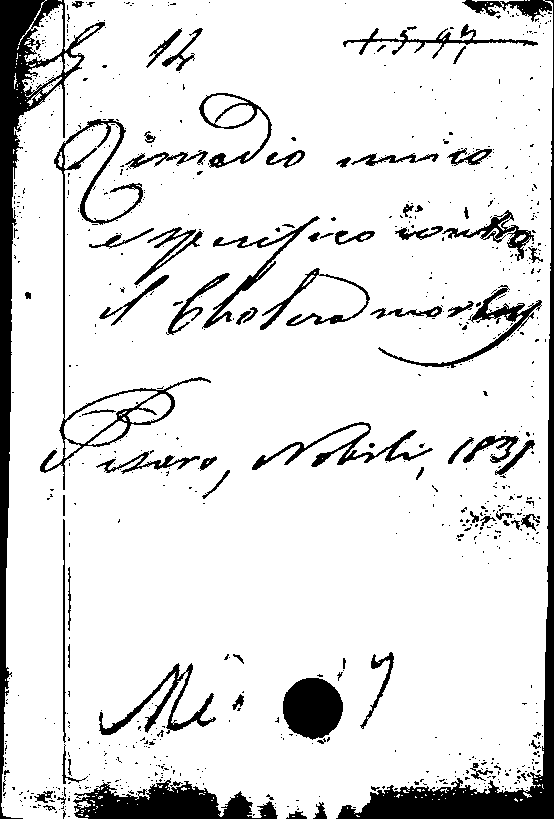 G. 12 1,5,97
Rimedio unico
e specifico contro
il Cholera morbus
Pesaro, Nobili, 1831